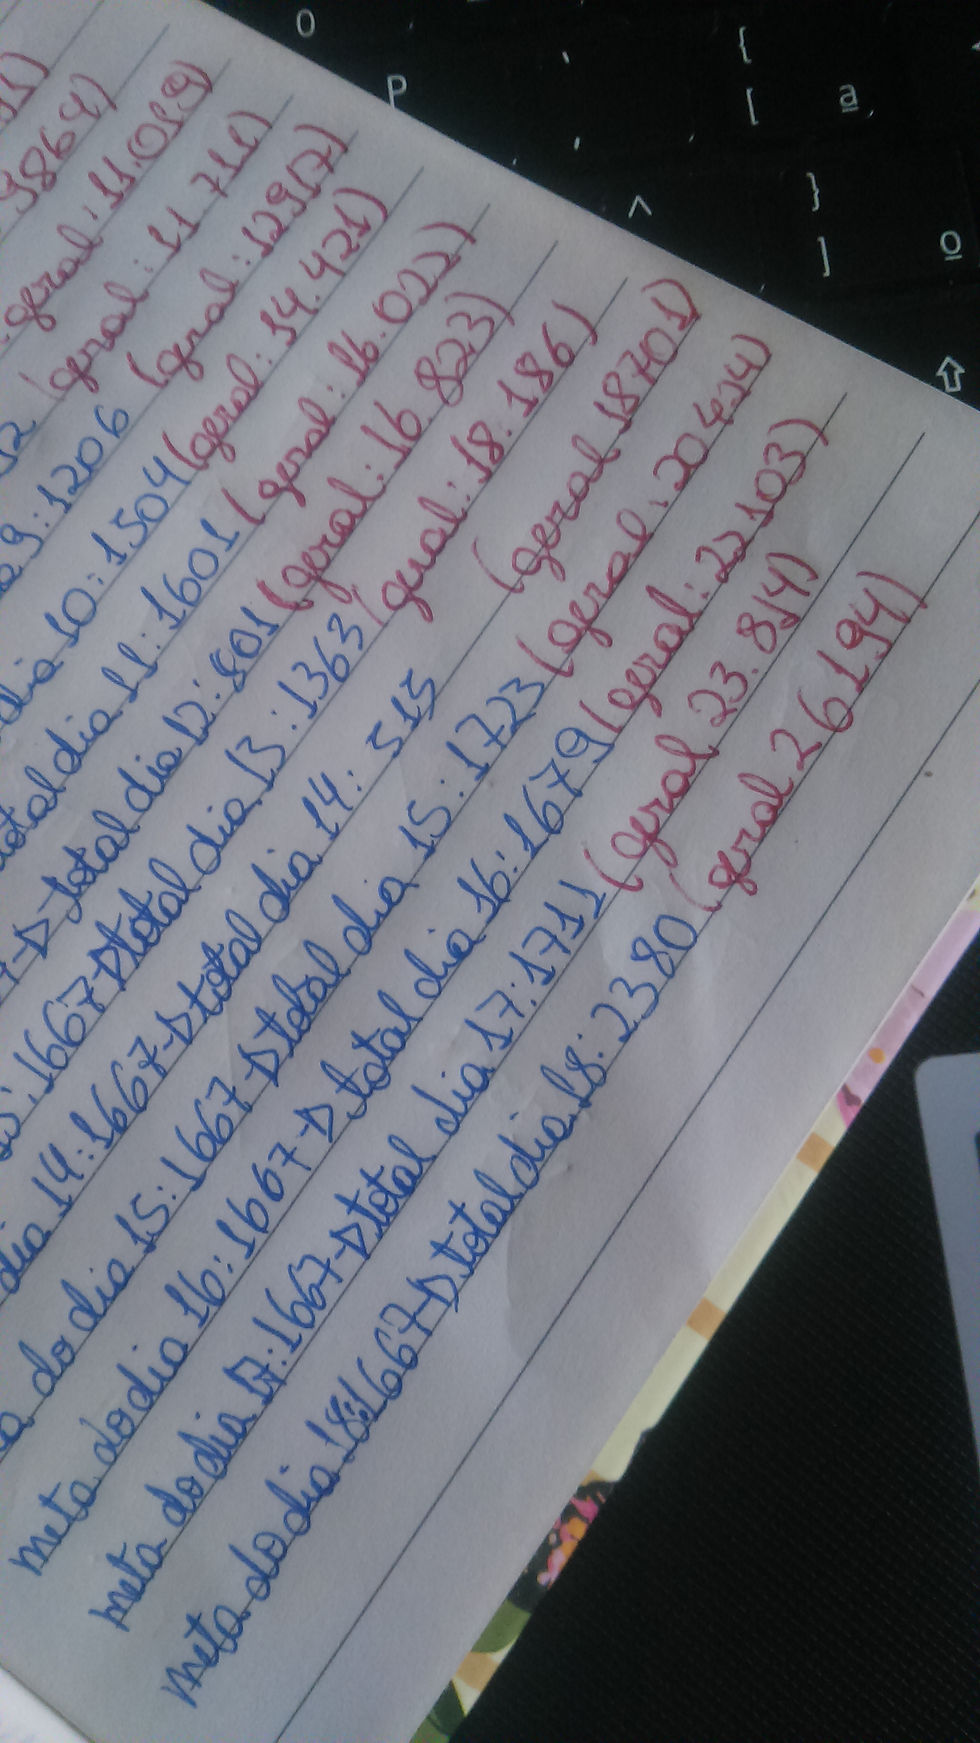 9864)
geral: 11.019)
(geral: 11 711)
9: 1206 (geral: 12917)
dia 10: 1504 (geral: 14.421)
total dia 11: 1601 (geral: 16.022)
total dia 12: 801 (geral: 16.823)
1667 -D total dia 13: 1363 (geral: 18.186)
dia 14: 1667 -D total dia 14: 515 (geral 18701)
do dia 15: 1667 -D total dia 15: 1723 (geral: 20424)
meta do dia 16: 1667 -D total dia 16: 1679 (geral: 22103)
meta do dia 17: 1667 -D total dia 17: 1711 (geral 23.814)
meta do dia 18: 1667 -D total dia 18: 2380 (geral 26194)
O
P
{
[
ª
^
}
]
º